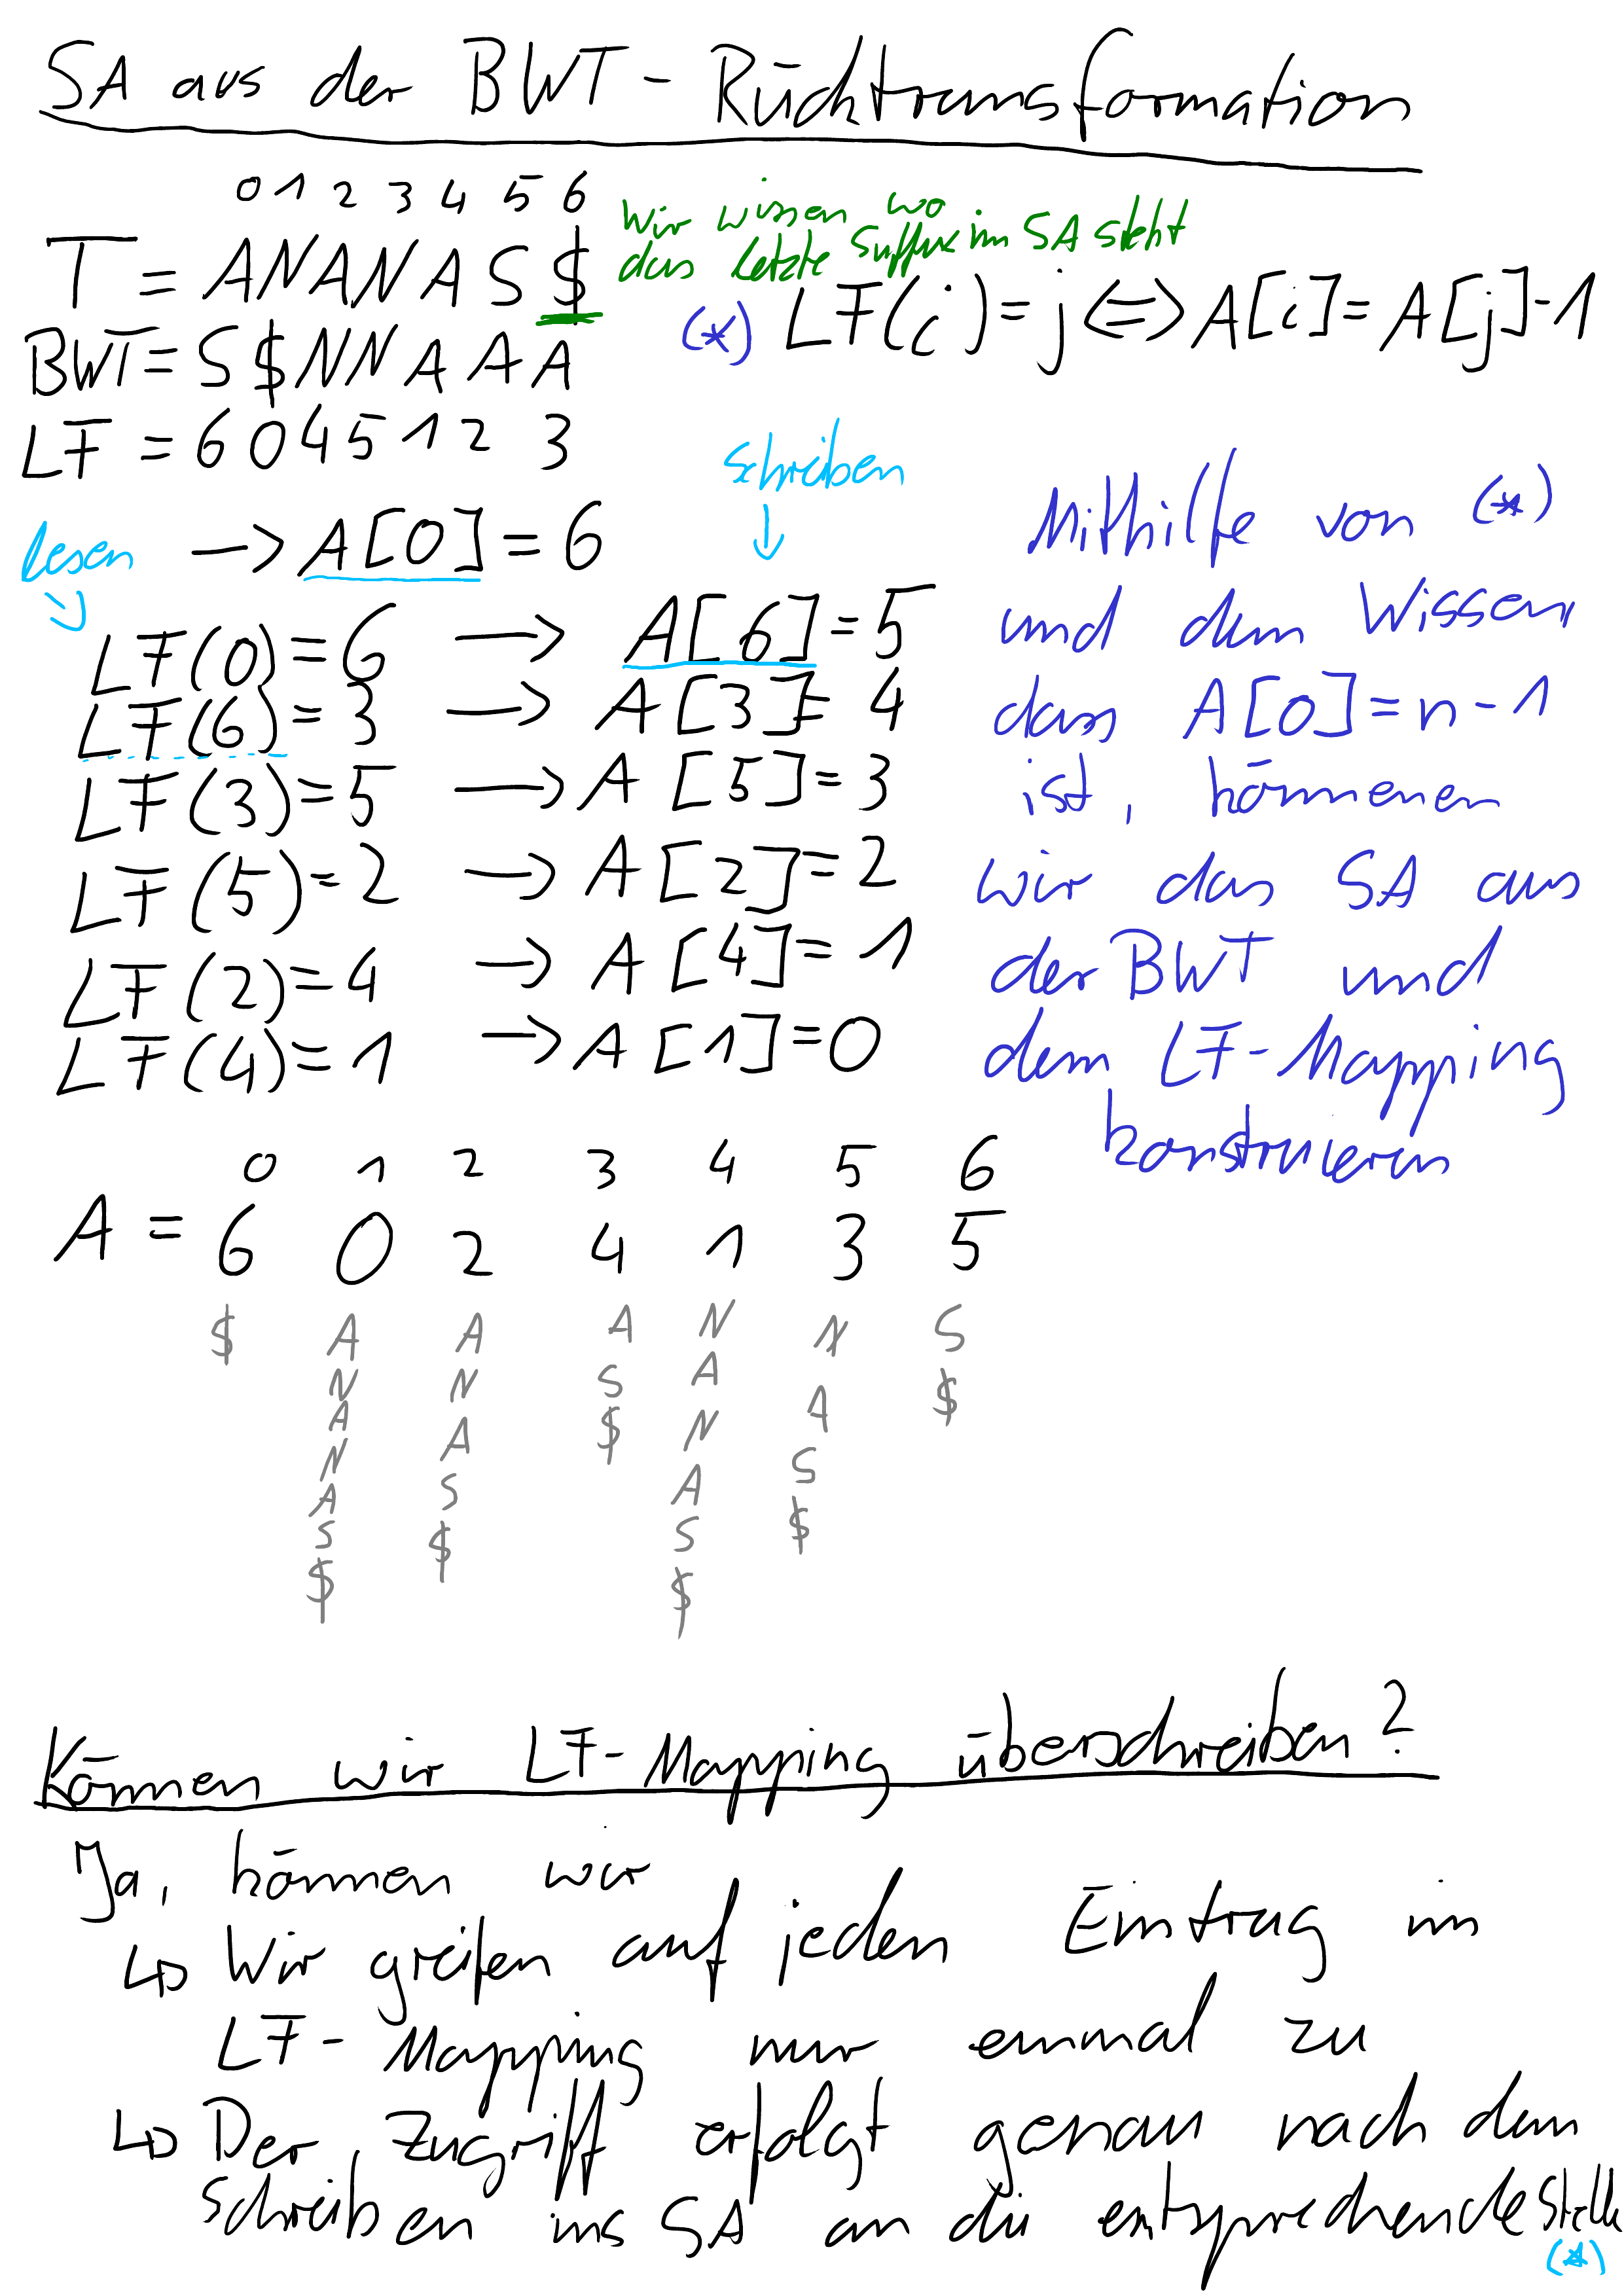 SA aus der BWT - Rücktransformation
0 1 2 3 4 5 6
T = ANANAS$
Wir wissen wo
das letzte Suffix im SA steht
BWT = S$NNAAA
(*) LF(i) = j <=> A[i] = A[j]-1
LF = 6 0 4 5 1 2 3
schreiben
↓
lesen
→ A[0] = 6
LF(0) = 6 → A[6] = 5
LF(6) = 3 → A[3] = 4
LF(3) = 5 → A[5] = 3
LF(5) = 2 → A[2] = 2
LF(2) = 4 → A[4] = 1
LF(4) = 1 → A[1] = 0
Mithilfe von (*)
und dem Wissen,
dass A[0] = n-1
ist, könnenen
wir das SA aus
der BWT und
dem LF-Mapping
konstruieren
0 1 2 3 4 5 6
A = 6 0 2 4 1 3 5
$ A A A N N S
N N S A A $
A A $ N S
N S A $
A $ S
S $
$
Können wir LF-Mapping überschreiben?
Ja, können wir
↳ Wir greifen auf jeden Eintrag im
LF-Mapping nur einmal zu
↳ Der Zugriff erfolgt genau nach dem
Schreiben ins SA an die entsprechende Stelle
(*)